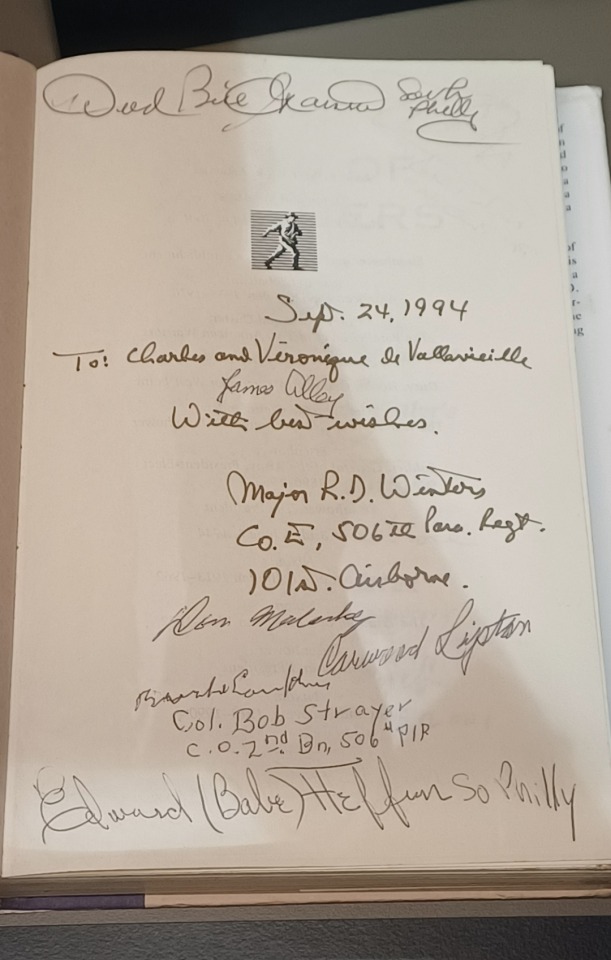 Wild Bill Guarnere South
Philly
Sept. 24, 1994
To: Charles and Véronique de Vallavieille
James Alley
With best wishes.
Major R.D. Winters
Co. E, 506th Para. Regt.
101st. Airborne.
Don Malarkey
Carwood Lipton
Col. Bob Strayer
C.O. 2nd Bn, 506th PIR
Edward (Babe) Heffron So Philly